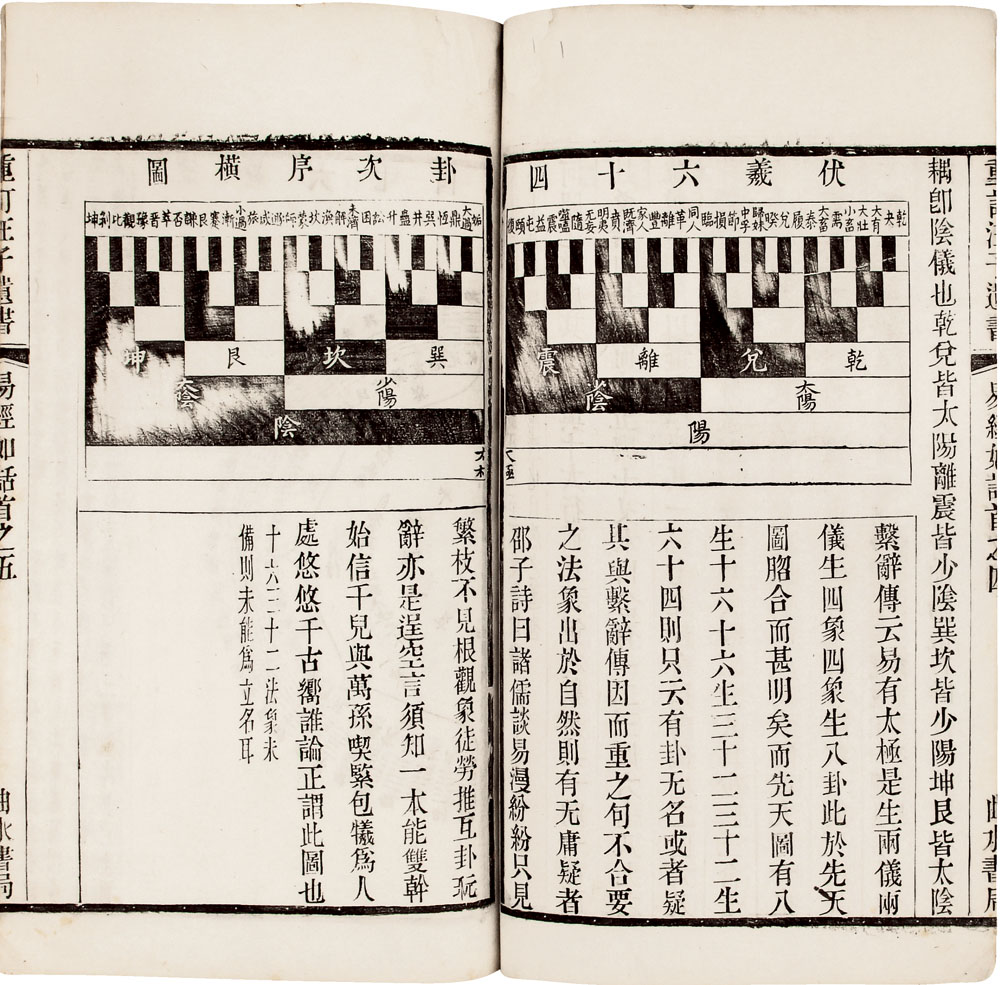 耦卽陰儀也乾兌皆太陽離震皆少陰巽坎皆少陽坤艮皆太陰
伏羲六十四
卦次序橫圖
乾夬大有大壯小畜需大畜泰履兌睽歸妹中孚節損臨同人革離豐家人既濟賁明夷无妄隨噬嗑震益屯頤復
姤大過鼎恆巽井蠱升訟困未濟解渙坎蒙師遯咸旅小過漸蹇艮謙否萃晉豫觀比剝坤
乾兌離震
巽坎艮坤
太陽少陰
少陽太陰
陽
陰
太極
繫辭傳云易有太極是生兩儀兩
儀生四象四象生八卦此於先天
圖脗合而甚明矣而先天圖有八
生十六十六生三十二三十二生
六十四則只云有卦无名或者疑
其與繫辭傳因而重之句不合要
之法象出於自然則有无庸疑者
邵子詩曰諸儒談易漫紛紛只見
繁枝不見根觀象徒勞推互卦玩
辭亦是逞空言須知一本能雙幹
始信千兒與萬孫喫緊包犧爲人
處悠悠千古嚮誰論正謂此圖也
十六三十二法象未
備則未能爲立名耳
重訂汪子遺書
易經如話首之五
曲水書局